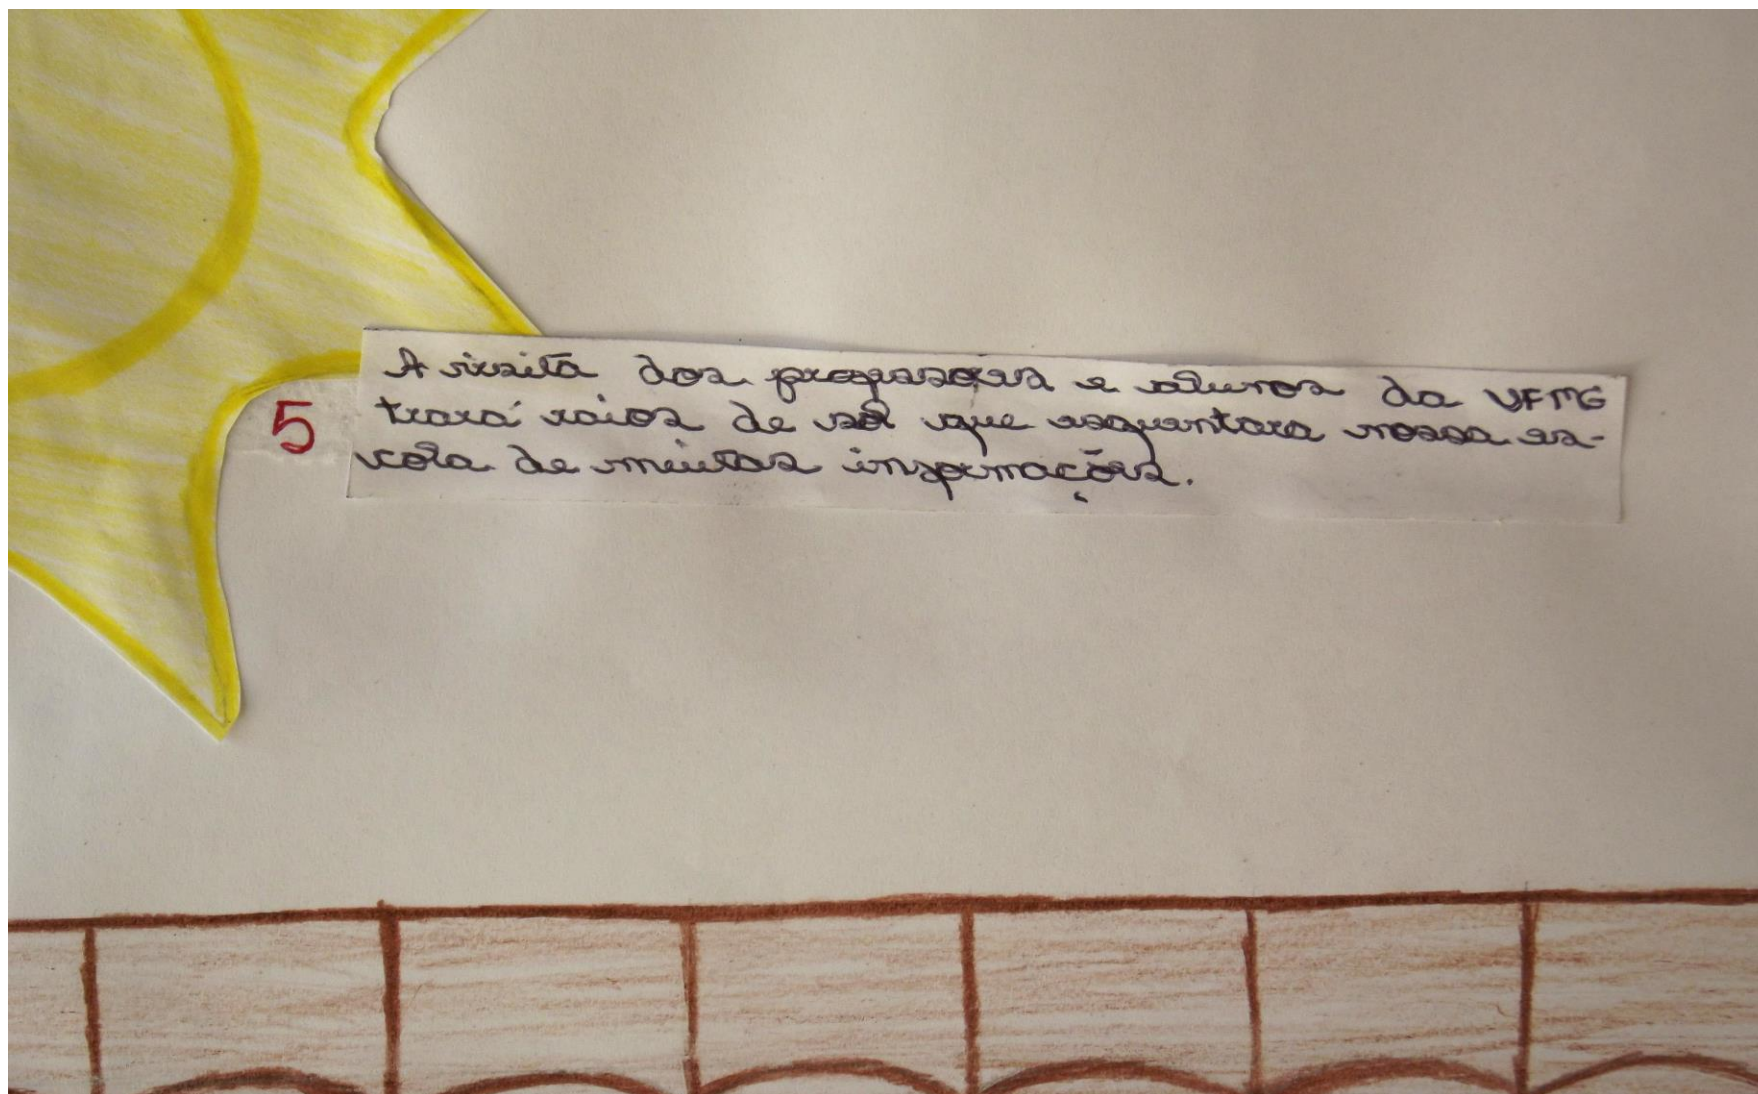 A visita dos professores e alunos da UFMG
5
trará raios de sol que esquentara nossa es-
cola de muitas informações.